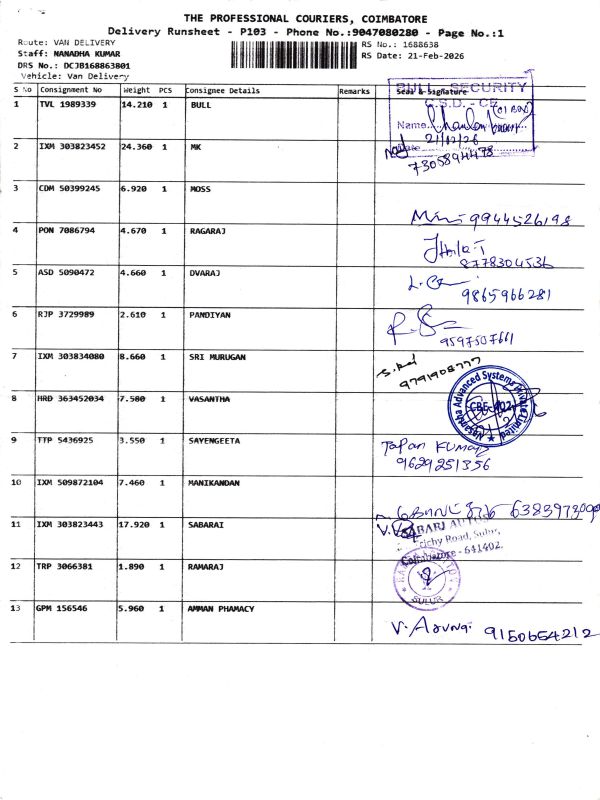 THE PROFESSIONAL COURIERS, COIMBATORE
Delivery Runsheet - P103 - Phone No.:9047080280 - Page No.:1
Route: VAN DELIVERY
Staff: NANADHA KUMAR
DRS No.: DCJB168863801
Vehicle: Van Delivery
RS No.: 1688638
RS Date: 21-Feb-2026
S No Consignment No Weight PCS Consignee Details Remarks Seal & Signature
1 TVL 1989339 14.210 1 BULL
BULL SECURITY
C.S.D. - CE
Name
7305894478
2 IXM 303823452 24.360 1 MK
3 CDM 50399245 6.920 1 MOSS
9944526198
4 PON 7086794 4.670 1 RAGARAJ
8778304536
5 ASD 5090472 4.660 1 DVARAJ
9865966281
6 RJP 3729989 2.610 1 PANDIYAN
9597507661
7 IXM 303834080 8.660 1 SRI MURUGAN
9791908777
8 HRD 363452034 7.580 1 VASANTHA
Vasantha Advanced Systems Private Limited
CBE-402
9 TTP 5436925 3.550 1 SAYENGEETA
Tapan Kumar
9629251356
10 IXM 509872104 7.460 1 MANIKANDAN
11 IXM 303823443 17.920 1 SABARAI
Trichy Road, Sulur,
Coimbatore - 641402.
12 TRP 3066381 1.890 1 RAMARAJ
SULUR
13 GPM 156546 5.960 1 AMMAN PHAMACY
9150654212